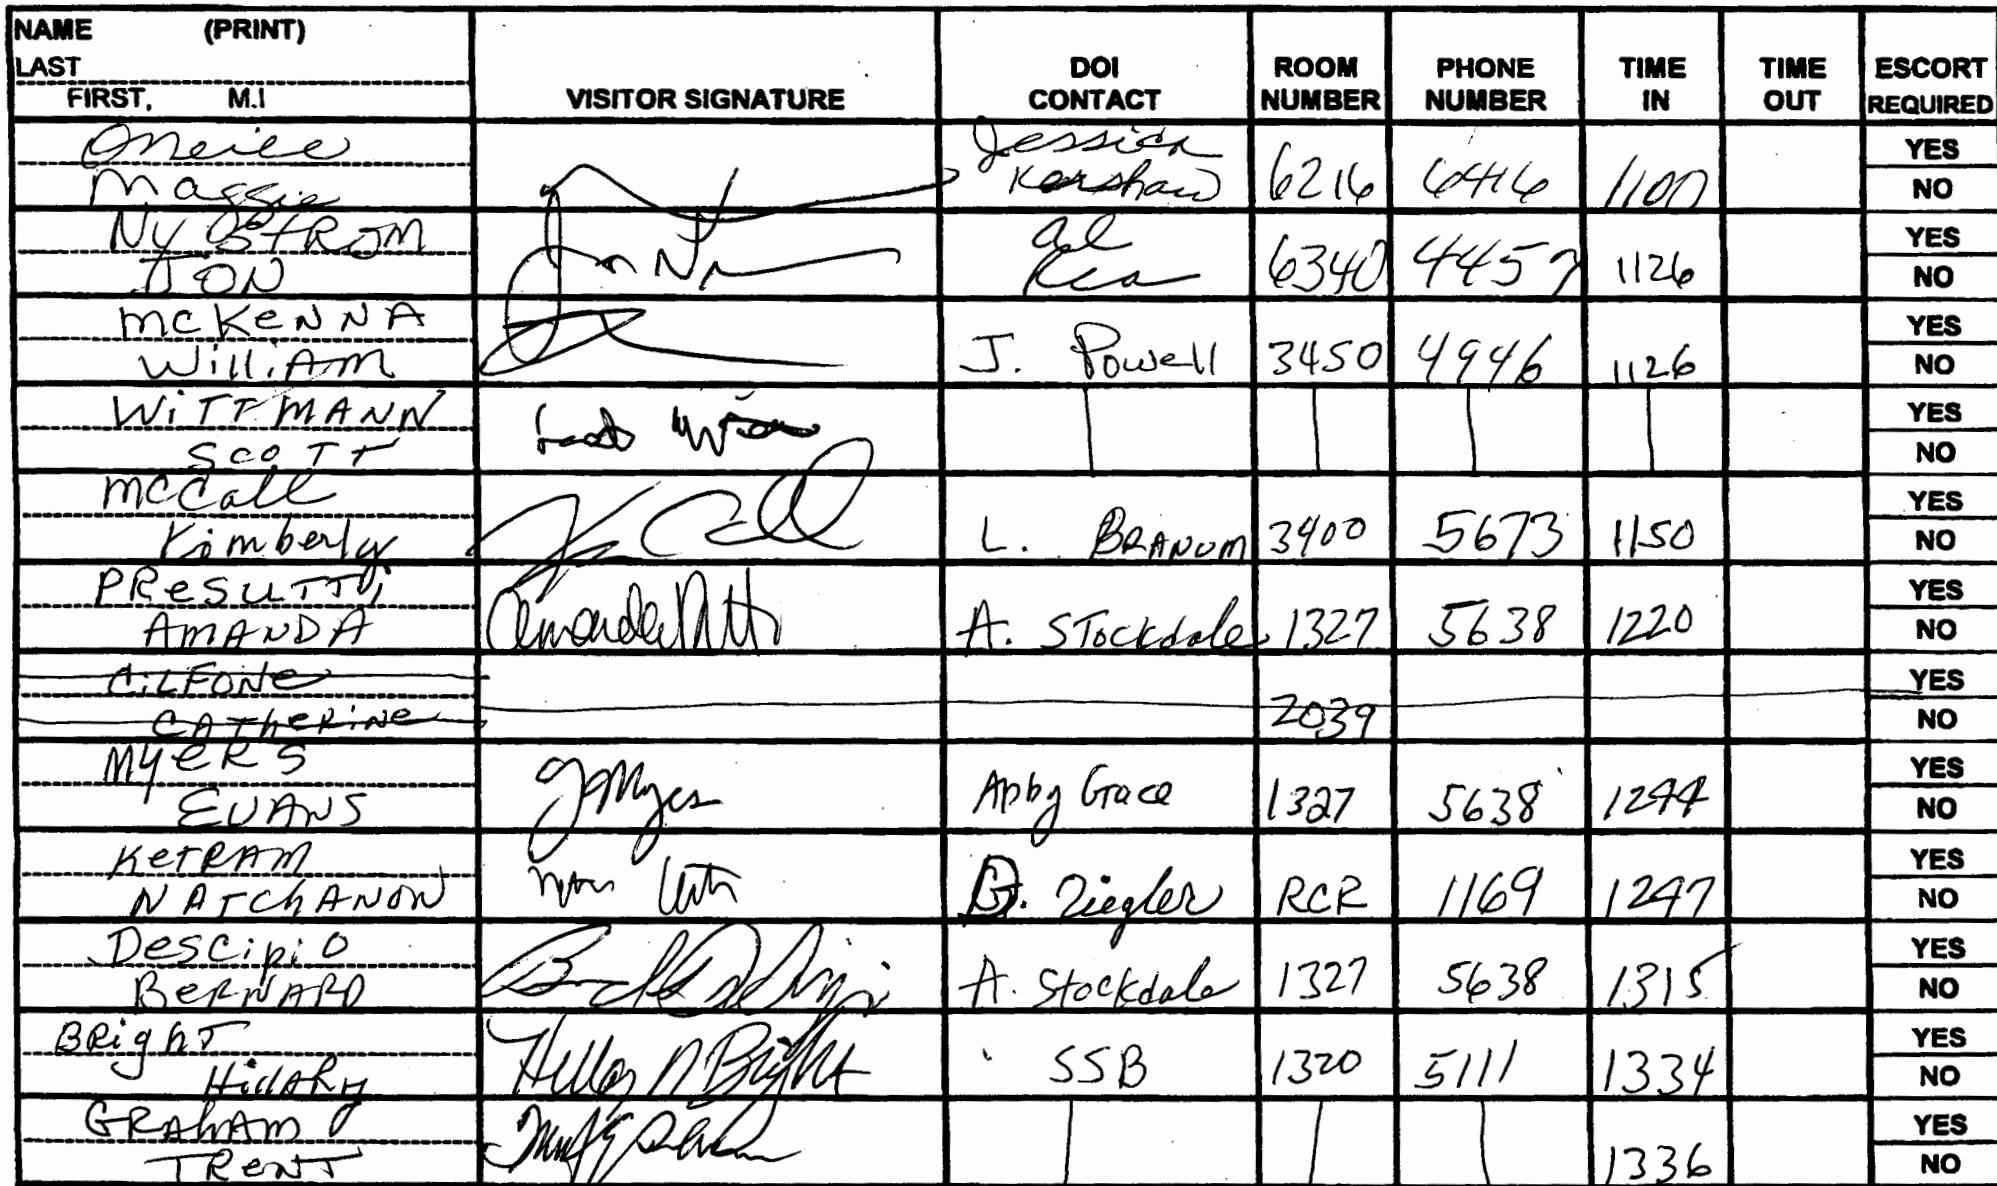 NAME (PRINT)
LAST
FIRST, M.I
VISITOR SIGNATURE
DOI CONTACT
ROOM NUMBER
PHONE NUMBER
TIME IN
TIME OUT
ESCORT REQUIRED
Oneill
Maggie
Jessica
Kershaw
6216 6416 1100
YES
NO
NYSTROM
JON
al
Rea
6340 4457 1126
YES
NO
McKeNNA
WilliAm
J. Powell 3450 4946 1126
YES
NO
WiTTMANN
SCOTT
YES
NO
McCall
Kimberly
L. BRANUM 3400 5673 1150
YES
NO
PReSUTTi
AMANDA
A. STockdale 1327 5638 1220
YES
NO
CiLFONe
CAThERiNe
2039
YES
NO
MYeRS
EVANS
Abby Grace 1327 5638 1244
YES
NO
KeTRAM
NATChANON
Ziegler RCR 1169 1247
YES
NO
DeSCipiO
BeRNARD
A. Stockdale 1327 5638 1315
YES
NO
BRighT
HillARy
Hillary N Bright
SSB 1320 5111 1334
YES
NO
GRAhAM
TReNT
1336
YES
NO